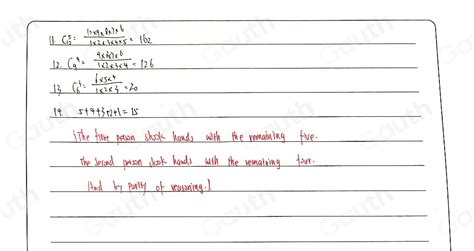 11. C₁₀⁵ = 10×9×8×7×6 / 1×2×3×4×5 = 162
12. C₉⁴ = 9×8×7×6 / 1×2×3×4 = 126
13. C₆³ = 6×5×4 / 1×2×3 = 20
14. 5+4+3+2+1=15
(The first person shook hands with the remaining five.
The second person shook hands with the remaining four.
And by parity of reasoning.)
Gauth